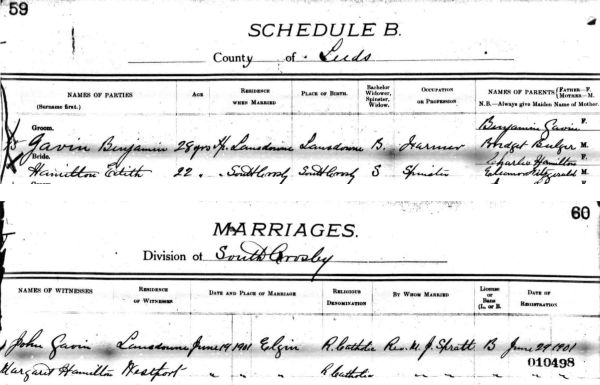 59
SCHEDULE B.
County of Leeds
NAMES OF PARTIES
(Surname first.)
AGE
RESIDENCE
WHEN MARRIED
PLACE OF BIRTH.
Bachelor
Widower,
Spinster,
Widow.
OCCUPATION
OR PROFESSION
NAMES OF PARENTS (FATHER—F.
(MOTHER—M.
N.B.—Always give Maiden Name of Mother.
Groom.
Benjamin Gavin F.
Gavin Benjamin 28 yrs Lansdowne Lansdowne B. Farmer Bridget Bulger M.
Bride.
Charles Hamilton F.
Hamilton Edith 22 " " South Crosby South Crosby S Spinster Eleanor Fitzgerald M.
60
MARRIAGES.
Division of South Crosby
NAMES OF WITNESSES
RESIDENCE
OF WITNESSES
DATE AND PLACE OF MARRIAGE
RELIGIOUS
DENOMINATION
BY WHOM MARRIED
License
or
Bans
(L. or B.
DATE OF
REGISTRATION
John Gavin Lansdowne June 19 1901 Elgin R. Catholic Rev. W. J. Spratt B June 29 1901
010498
Margaret Hamilton Westport " " " R. Catholic " " "